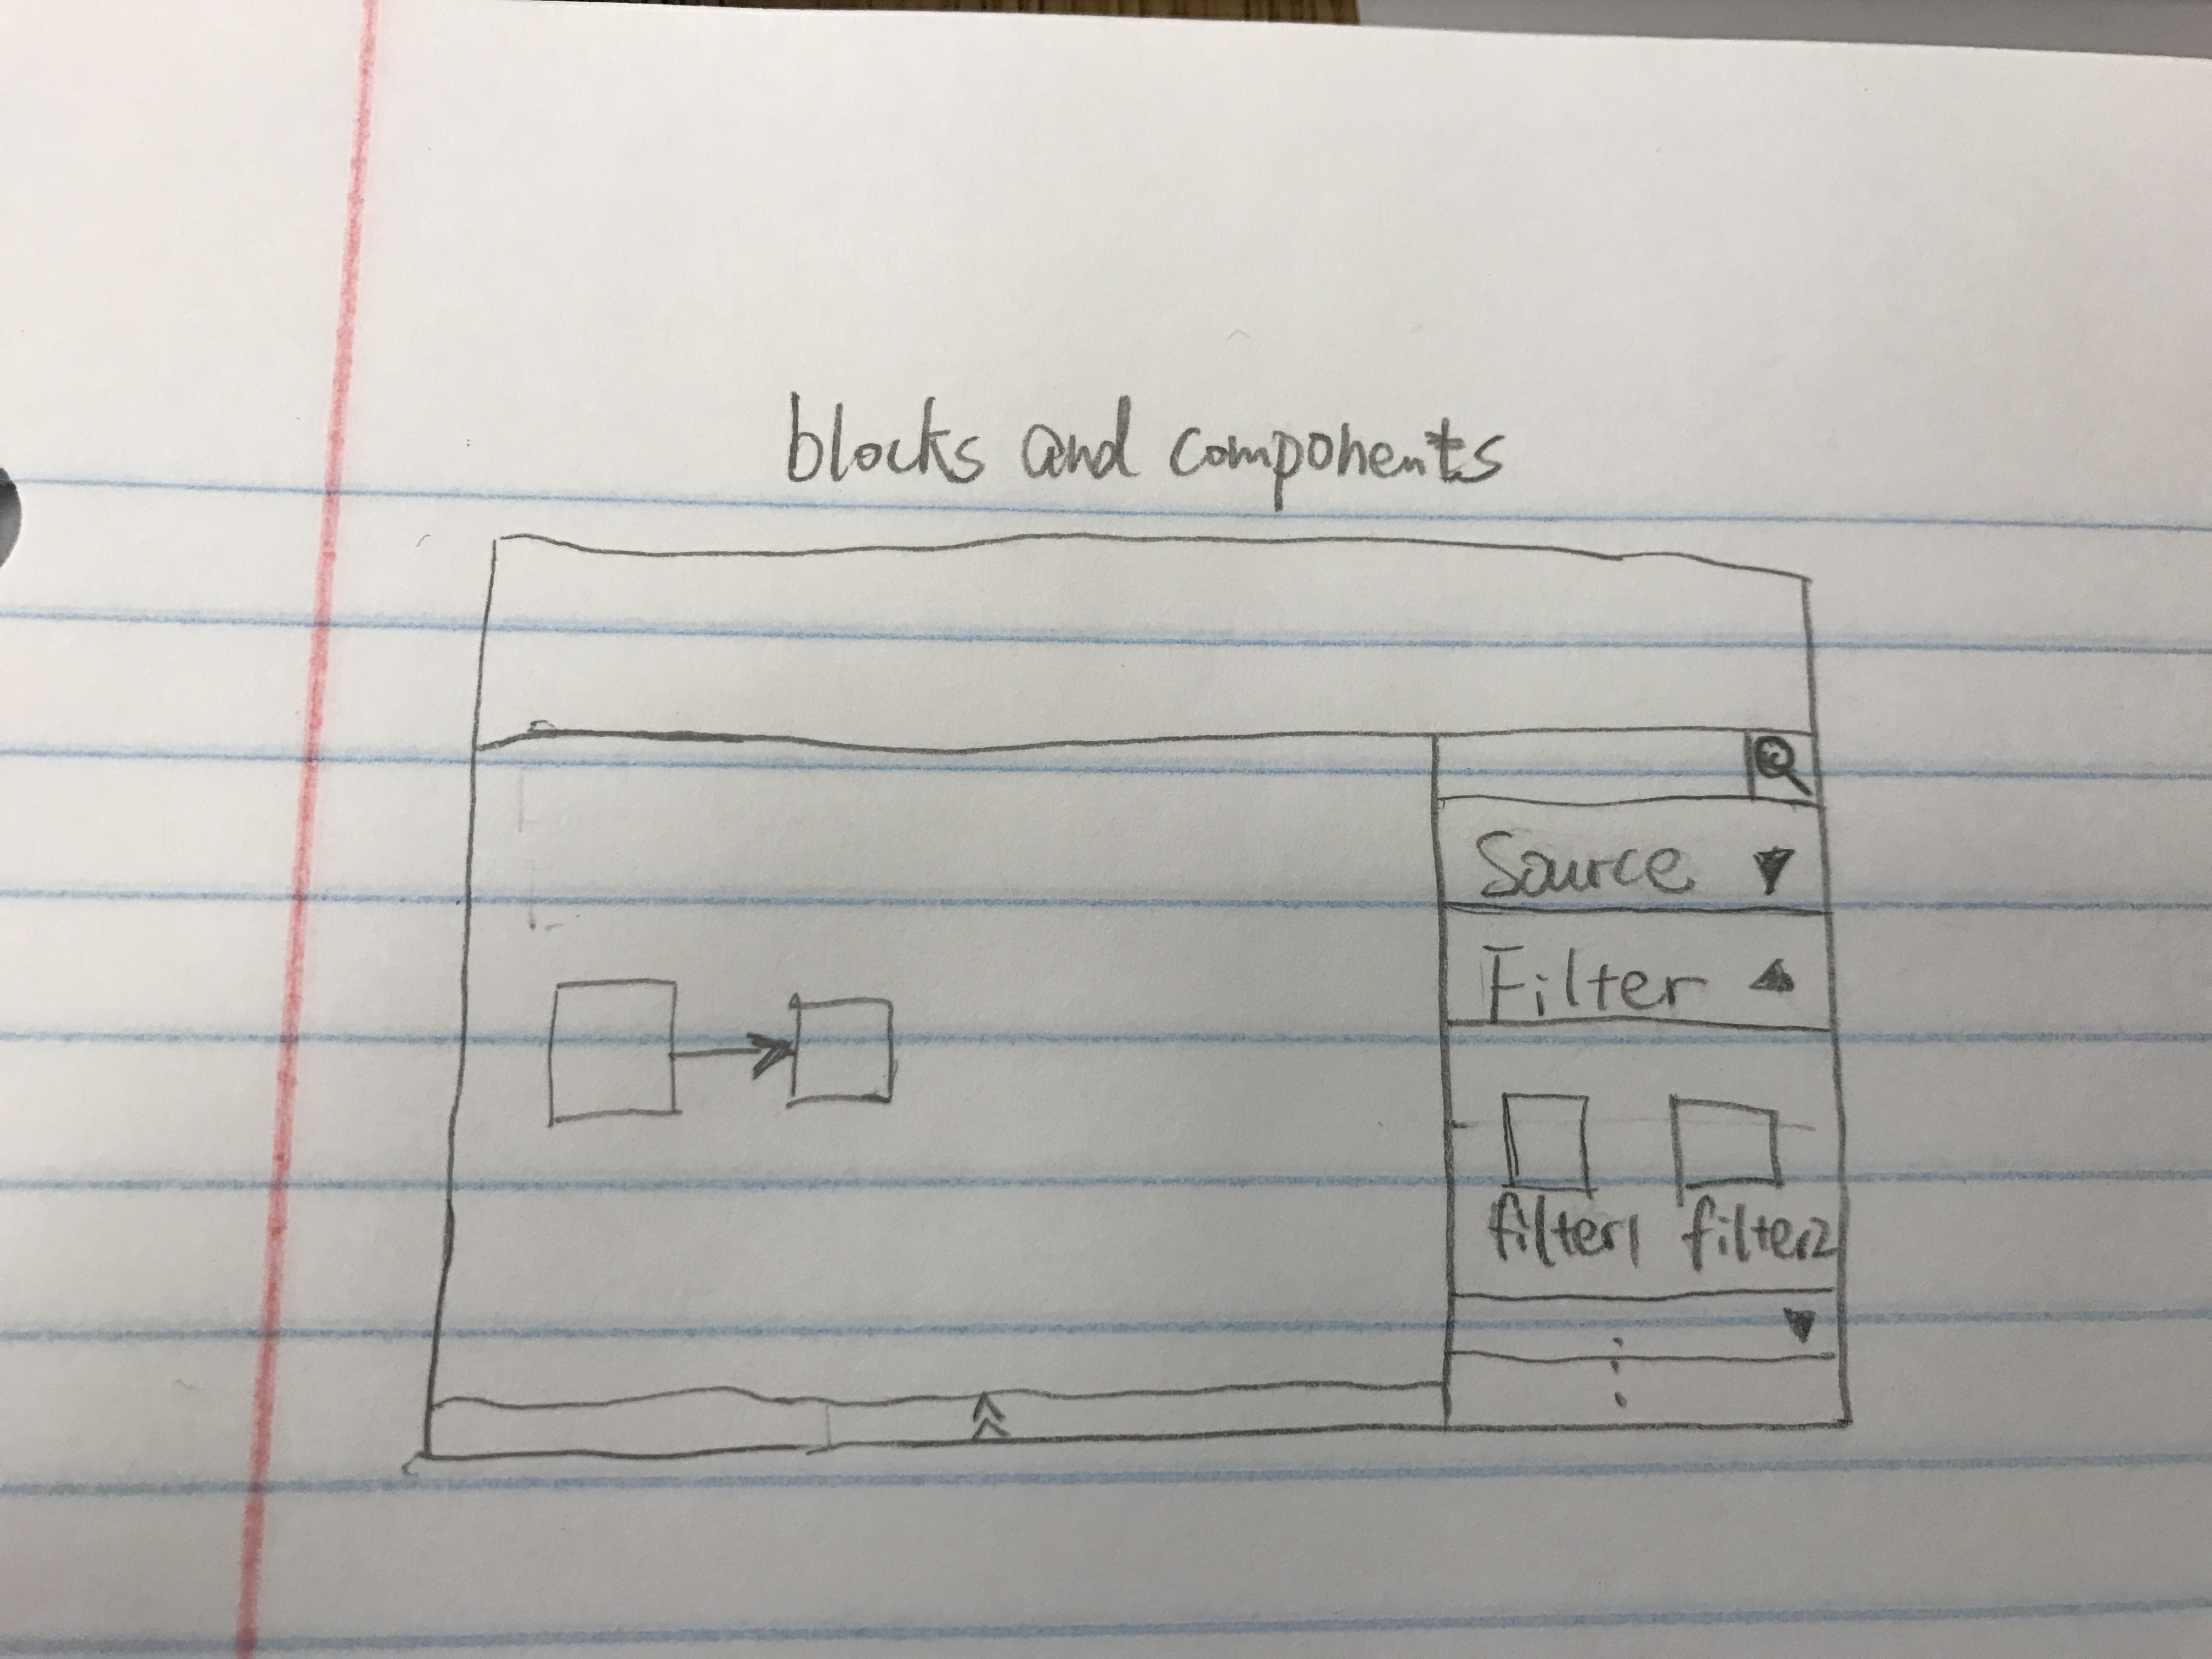 blocks and components
Source
Filter
filter1 filter2